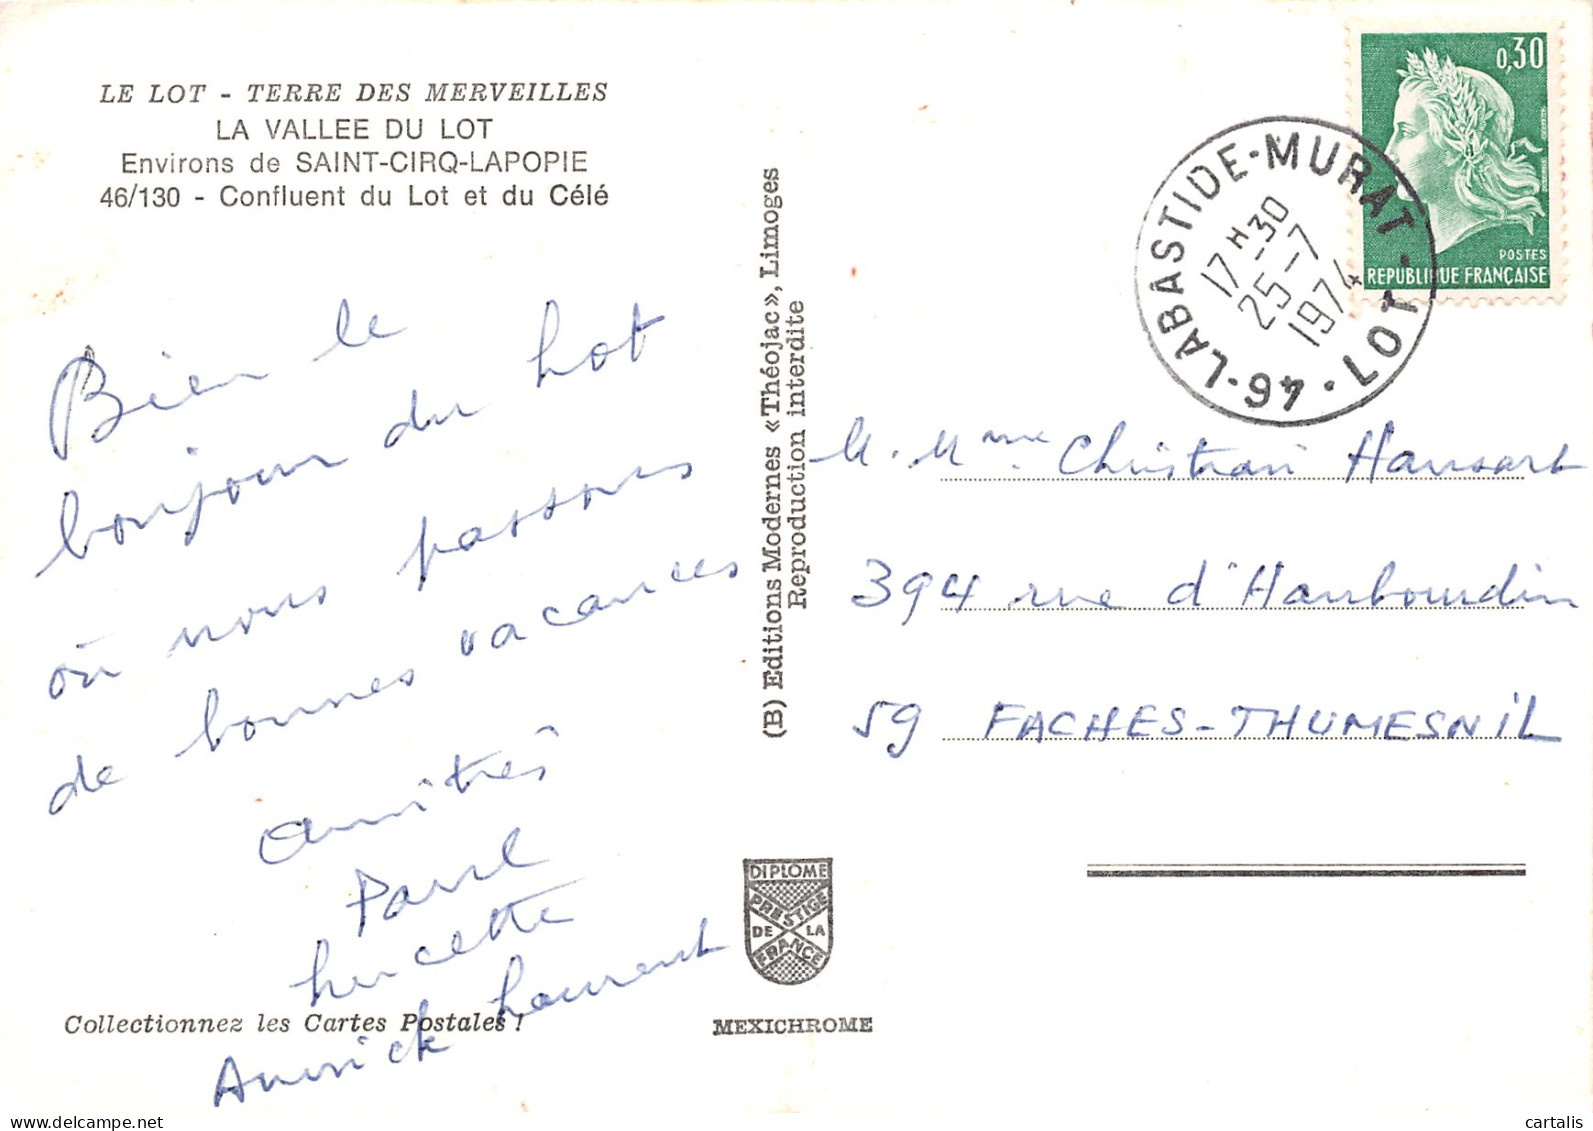 LE LOT - TERRE DES MERVEILLES
LA VALLEE DU LOT
Environs de SAINT-CIRQ-LAPOPIE
46/130 - Confluent du Lot et du Célé
Bien le
bonjour du Lot
où nous passons
de bonnes vacances
Amitiés
Paul
Lucette
Annick Laurent
Collectionnez les Cartes Postales !
(B) Editions Modernes «Théojac», Limoges
Reproduction interdite
DIPLOME
PRESTIGE
DE LA
FRANCE
MEXICHROME
0,30
POSTES
REPUBLIQUE FRANÇAISE
46-LABASTIDE-MURAT · LOT ·
17 H-30
25-7
1974
M. Mme Christian Hansart
394 rue d'Haubourdin
59 FACHES-THUMESNIL
www.delcampe.net
cartalis